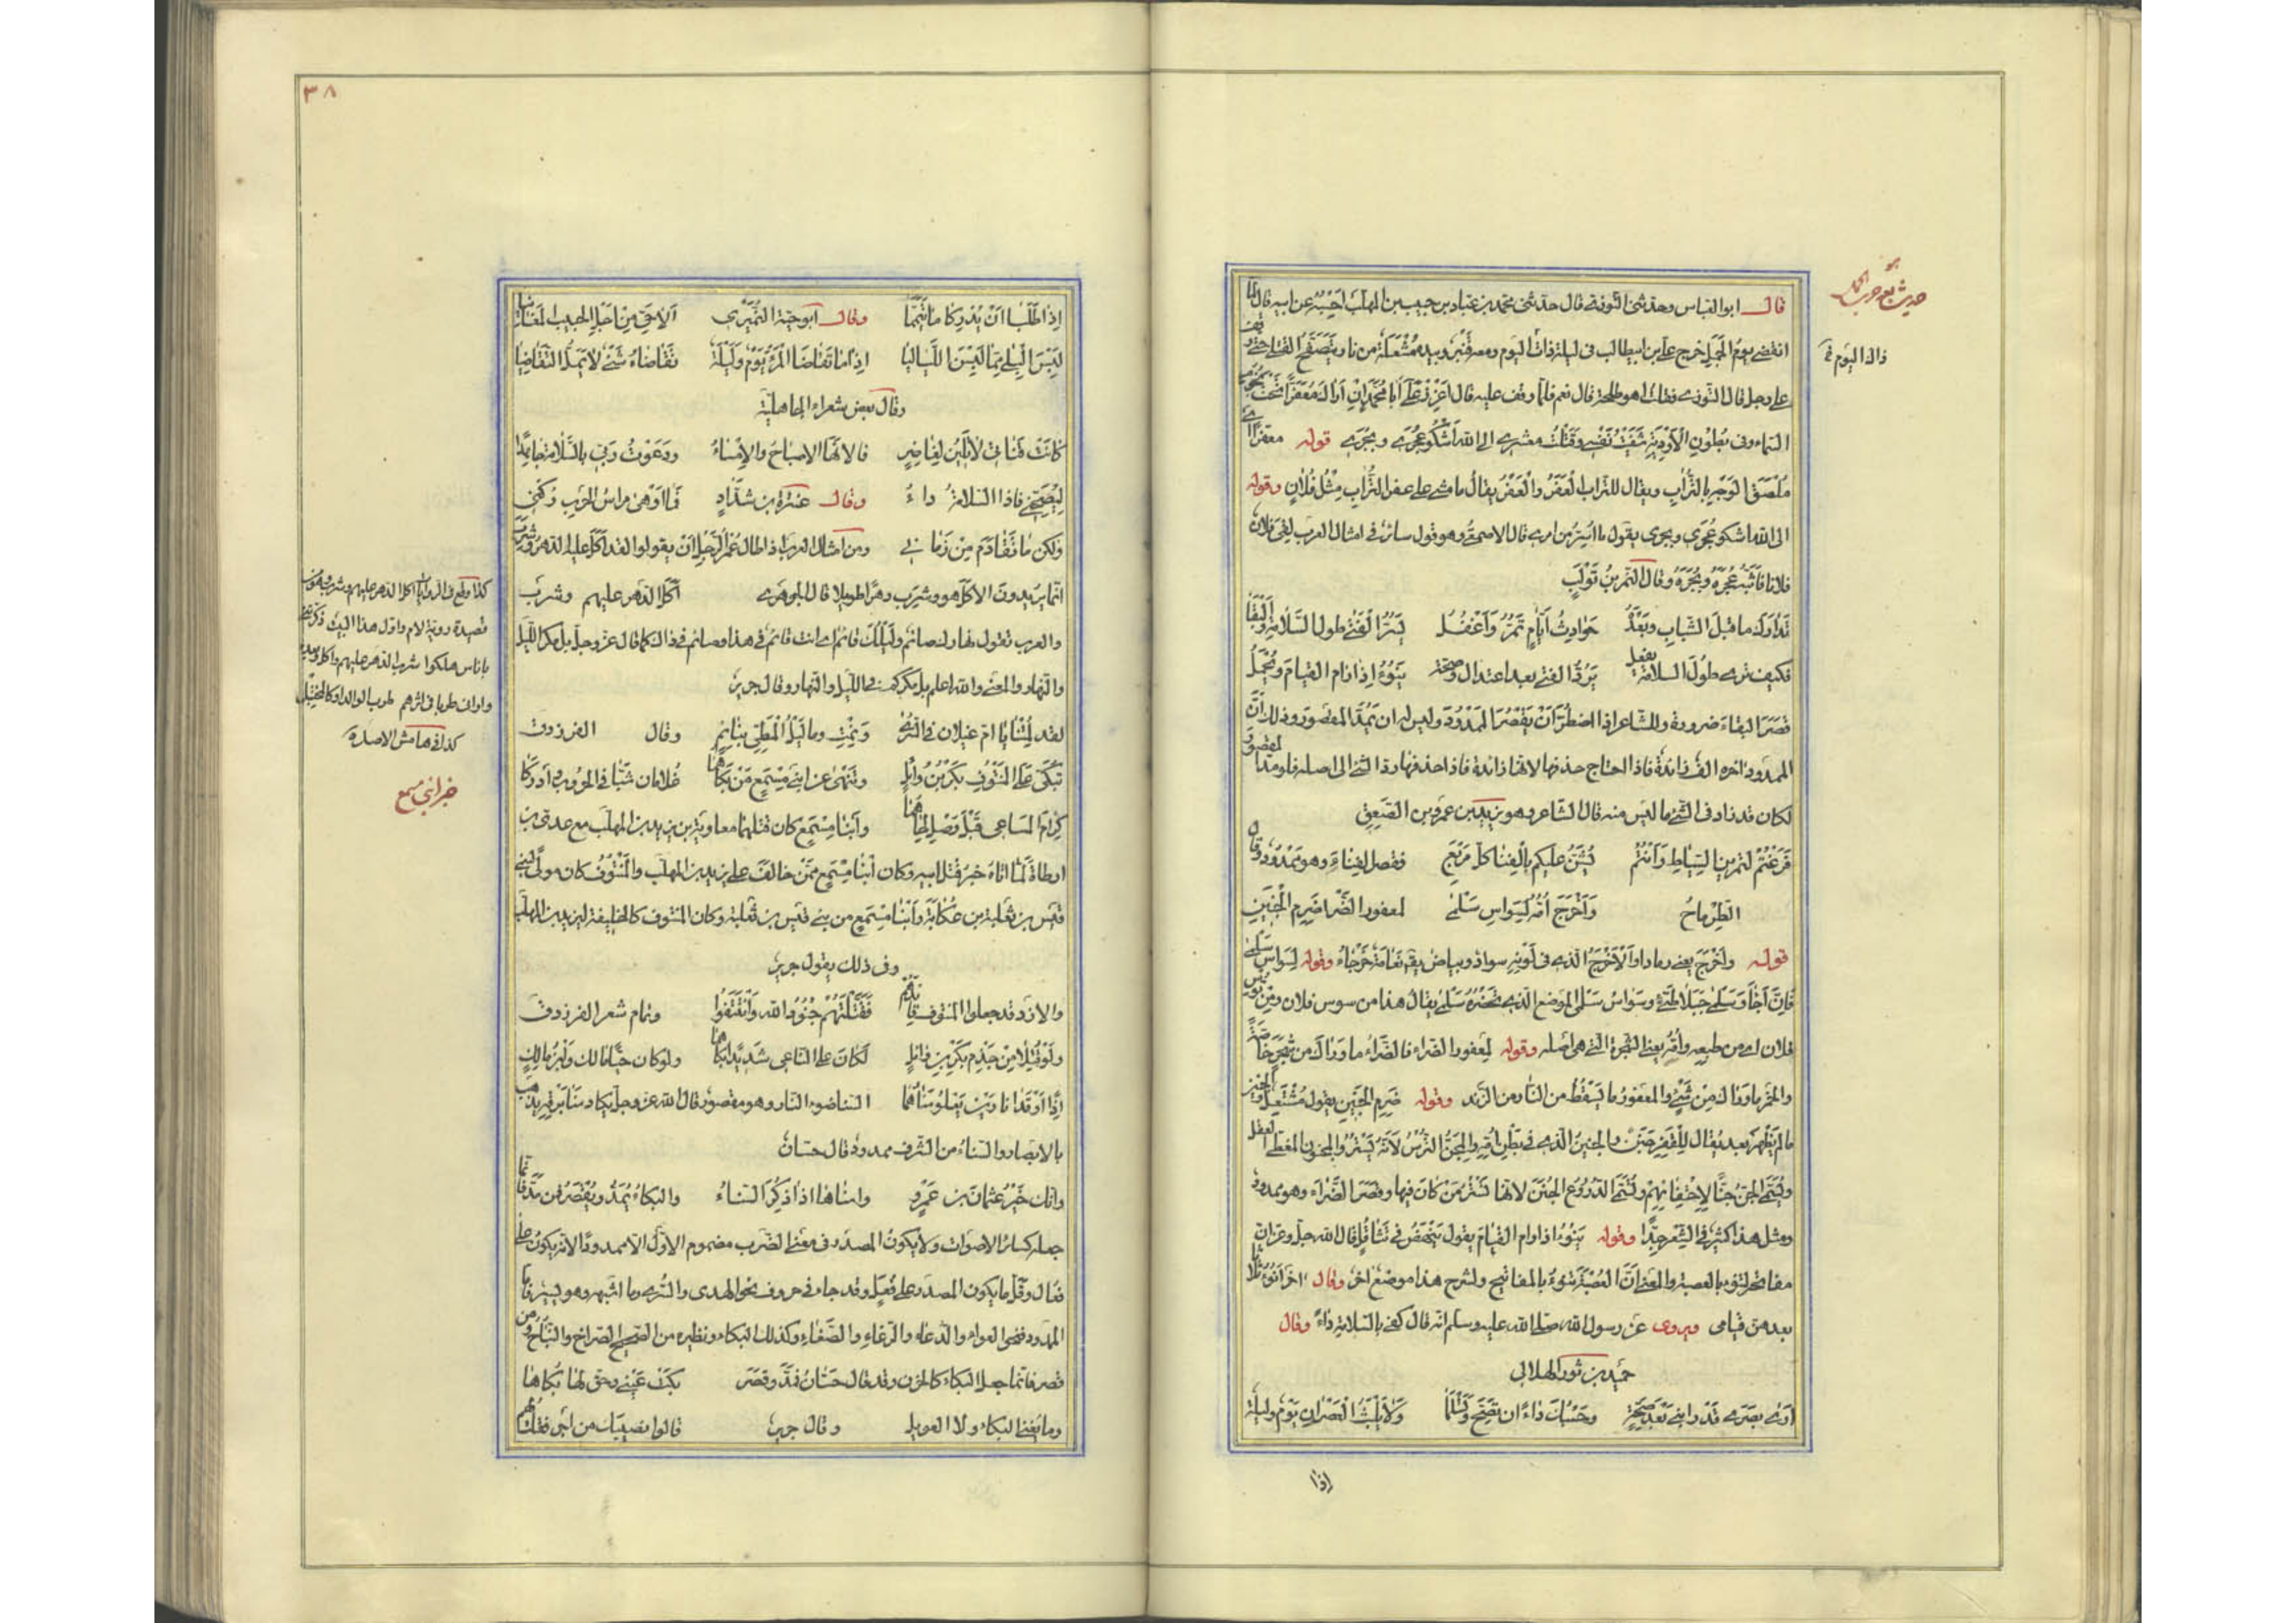 قالـ ابو العباس وحدثنى التوزى قال حدثنى محمد بن عباد بن حبيب بن المهلب احسبه عن ابيه قال لما
انقضى يوم الجمل خرج على بن ابيطالب فى ليلة ذاك اليوم ومعه قنبر وبيده مشعلة من نار يتصفح القتلى حتى وقف
على رجل قال التوزى فقلت اهو طلحة قال نعم فلما وقف عليه قال اعزز علىّ ابا محمد ان اراك معفرا تحت نجوم
السماء وفى بطون الاودية شفيت نفسى وقتلت معشرى الى الله اشكو عجرى وبجرى قوله معفرا اى
ملصق الوجه بالتراب ويقال للتراب العفر والعفر يقال ما مشى على عفر التراب مثل فلان وقوله
الى الله اشكو عجرى وبجرى يقول ما اسرّ من امرى قال الاصمعى وهو قول سائر فى امثال العرب لقى فلان
فلانا فابثه عجره وبجره وقال النمر بن تولب
تدارك ما قبل الشباب وبعده حوادث ايام تمر واغفل يسر الفتى طول السلامة والبقا
فكيف ترى طول السلامة يفعل يرد الفتى بعد اعتدال وصحة ينوء اذا رام القيام ويحمل
قصر البقاء ضرورة وللشاعر اذا اضطر ان يقصر الممدود وليس له ان يمد المقصور وذلك ان
الممدود اخره الف زائدة فاذا احتاج حذفها لانها زائدة فاذا حذفها رد الشئ الى اصله فلو مد المقصور
لكان قد زاد فى الشئ ما ليس منه قال الشاعر وهو يزيد بن عمرو بن الصعق
فرغتم لتمرين السياط وانتم يشن عليكم بالفنا كل مربع فقصر الفناء وهو ممدود وقال
الطرماح واخرج امه لسواس سلمى لمعفور الضرا ضرم الجنين
قوله واخرج يعنى رمادا والاخرج الذى فى لونه سواد وبياض يقال نعامة خرجاء وقوله لسواس سلمى
فان اجأ وسلمى جبلا طيئ وسواس سلمى الموضع الذى بحضرة سلمى يقال هذا من سوس فلان ومن توس
فلان اى من طبعه وامه يعنى الشجرة التى هى اصله وقوله لمعفور الضراء فالضراء ما واراك من شجر خاصة
والخمر ما واراك من شئ والمعفور ما يسقط من النار من الزند وقوله ضرم الجنين يقول مشتعل والجنين
ما لم يظهر بعد يقال للقبر جنن والجنين الذى فى بطن امه والمجن الترس لانه يستر والمجنون المغطى العقل
وسمى الجن جنا لاختفائهم وتسمى الدروع الجنن لانها تستر من كان فيها وقصر الضراء وهو ممدود
ومثل هذا كثير فى الشعر جدا وقوله ينوء اذا رام القيام يقول ينهض فى تثاقل قال الله جل وعز ان
مفاتحه لتنوء بالعصبة والمعنى ان العصبة تنوء بالمفاتيح ولشرح هذا موضع اخر وقال اخر انوء ثلاثا
بعدهن قيامى ويروى عن رسول الله صلى الله عليه وسلم انه قال كفى بالسلامة داء وقال
حميد بن ثور الهلالى
ارى بصرى قد رابنى بعد صحة وحسبك داء ان تصح وتسلما ولا يلبث العصران يوم وليلة
اذا
ذاك اليوم فى
٣٨
اذا طلبا ان يدركا ما تيمما وقالـ ابو حية النميرى الا حى من اجل الحبيب المغانيا
لبسن البلى مما لبسن اللياليا اذا ما تقاضى المرء يوم وليلة تقاضاه شئ لا يمل التقاضيا
وقال بعض شعراء الجاهلية
كانت قناتى لا تلين لغامز فالانها الاصباح والامساء ودعوت ربى بالسلامة جاهدا
ليصحنى فاذا السلامة داء وقال عنترة بن شداد فما اوهى مراس الحرب ركنى
ولكن ما تقادم من زمانى ومن امثال العرب اذا طال عمر الرجل ان يقولوا لقد اكل عليه الدهر وشرب
انما يريدون الاكل هو وشرب دهرا طويلا قال الجوهرى اكل الدهر عليهم وشرب
والعرب تقول نهارك صائم وليلك قائم اى انت قائم فى هذا وصائم فى ذاك كما قال عز وجل بل مكر الليل
والنهار والمعنى والله اعلم بل مكركم فى الليل والنهار وقال جرير
لقد لمتنا يا ام غيلان فى السرى ونمت وما ليل المطى بنائم وقال الفرزدق
تبكى على المنتوف بكر بن وائل وتنهى عن ابنى مسمع من بكاهما غلامان شبا فى الحروب وادركا
كرام المساعى قبل وصل لحاهما وابنا مسمع كان قتلهما معاوية بن يزيد بن المهلب مع عدى بن
ارطاة لما اتاه خبر قتل ابيه وكان ابنا مسمع ممن خالف على يزيد بن المهلب والمنتوف كان مولى لبنى
قيس بن ثعلبة بن عكابة وابنا مسمع من بنى قيس بن ثعلبة وكان المنتوف كالخليفة ليزيد بن المهلب
وفى ذلك يقول جرير
والازد قد جعلوا المنتوف قائدهم فقتلتهم جنود الله وانتتفوا وتمام شعر الفرزدق
ولو قتلا من جذم بكر بن وائل لكان على الناعى شديدا بكاهما ولو كان حيا مالك وابن مالك
اذا اوقدا نارين يعلو سناهما السنا ضوء النار وهو مقصور قال الله عز وجل يكاد سنا برقه يذهب
بالابصار والسناء من الشرف ممدود قال حسان
وانك خير عثمان بن عمرو واسناها اذا ذكر السناء والبكاء يمد ويقصر فمن مد فانما
جعله كسائر الاصوات ولا يكون المصدر فى معنى الضرب مضموم الاول الا ممدودا لانه يكون على
فعال وقل ما يكون المصدر على فعل وقد جاء فى حروف نحو الهدى والسرى وما اشبهه وهو يسير فاما
الممدود فنحو العواء والدعاء والرغاء والضغاء وكذلك البكاء ونظيره من الصحيح الصراخ والنباح ومن
قصر فانما جعل البكاء كالحزن وقد قال حسان فمد وقصر بكت عينى وحق لها بكاها
وما يغنى البكاء ولا العويل وقال جرير قالوا نصيبك من اجر فقلت لهم
كذا وقع فى الروايات اكل الدهر عليهم وشرب وهو من
قصيدة روية لام واول هذا البيت
باناس هلكوا شرب الدهر عليهم واكل وبعده
وارانى طربا فى اثرهم طرب الواله او كالمختبل
كذا فى هامش الاصل
خبر ابنى مسمع